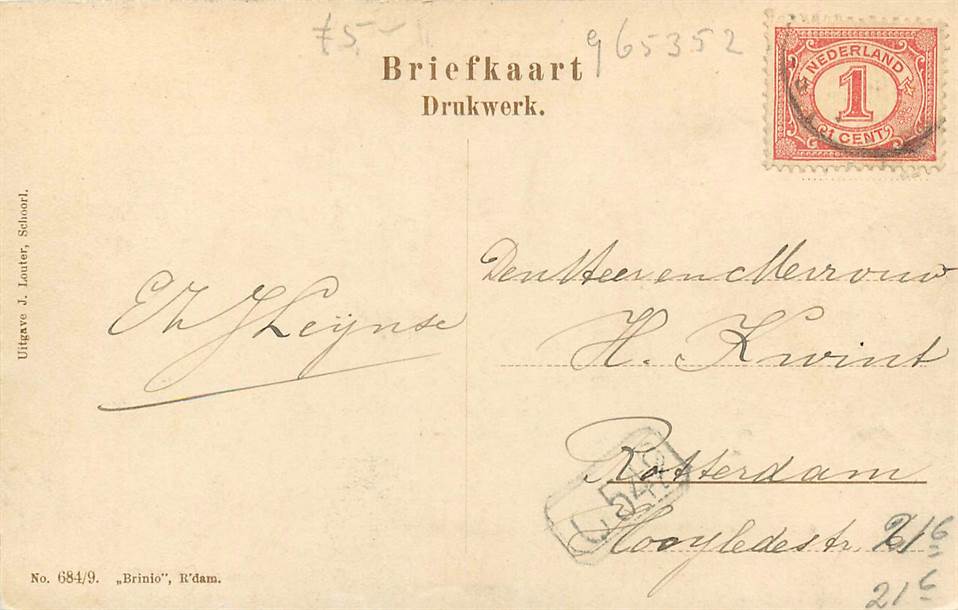 75,-
965352
Briefkaart
Drukwerk.
NEDERLAND
1
1 CENT
Uitgave J. Louter, Schoorl.
Den Heer en Mevrouw
H. Kwint
Leijnse
Rotterdam
Hooyledestr. 21 6
21 6
No. 684/9. „Brinio", R'dam.